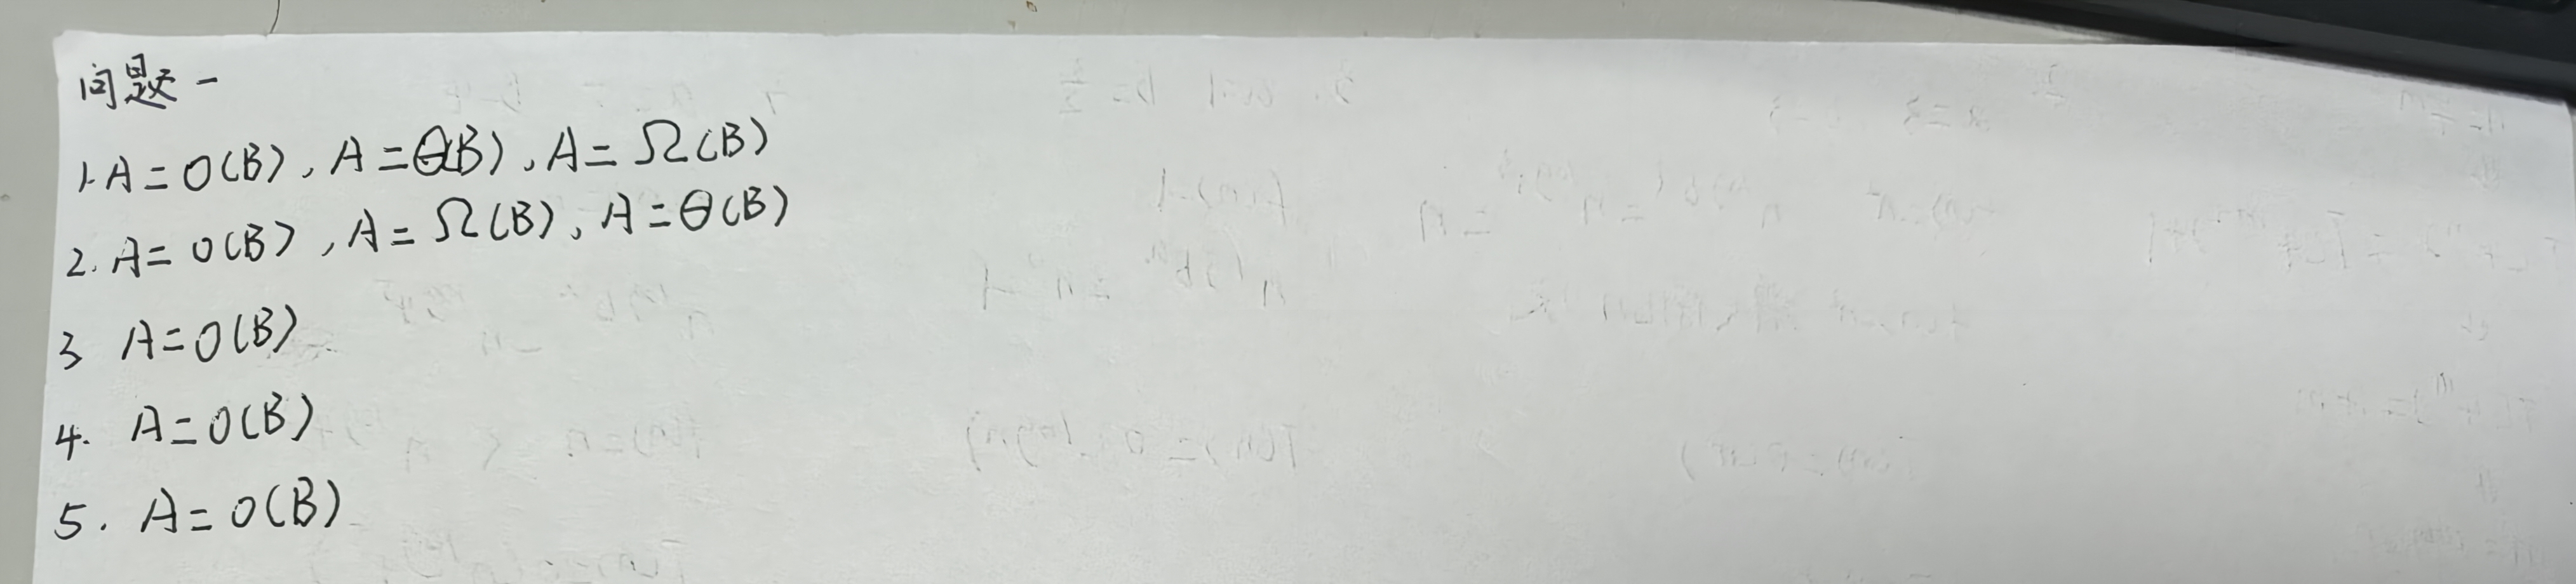 问题一
1. A=O(B), A=Θ(B), A=Ω(B)
2. A=O(B), A=Ω(B), A=Θ(B)
3 A=O(B)
4. A=O(B)
5. A=O(B)